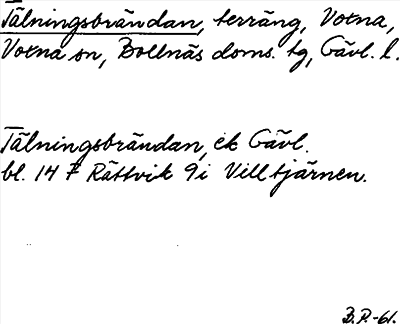 Tälningsbrändan, terräng, Votna,
Votna sn, Bollnäs doms. tg, Gävl. l.
Tälningsbrändan, ek Gävl.
bl. 14 F Rättvik 9i Villtjärnen.
B.P.-61.